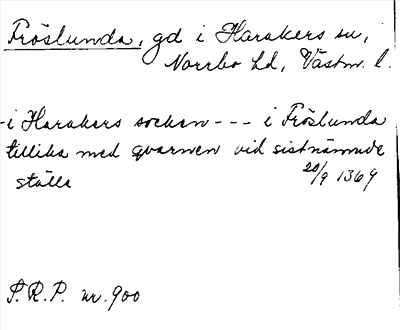 Fröslunda, gd i Harakers sn,
Norrbo hd, Västm. l.
- i Harakers sockan - - - i Fröslunda
tillika med qvarnen vid sistnämnde
ställe
20/9 1369
S.R.P. nr. 900